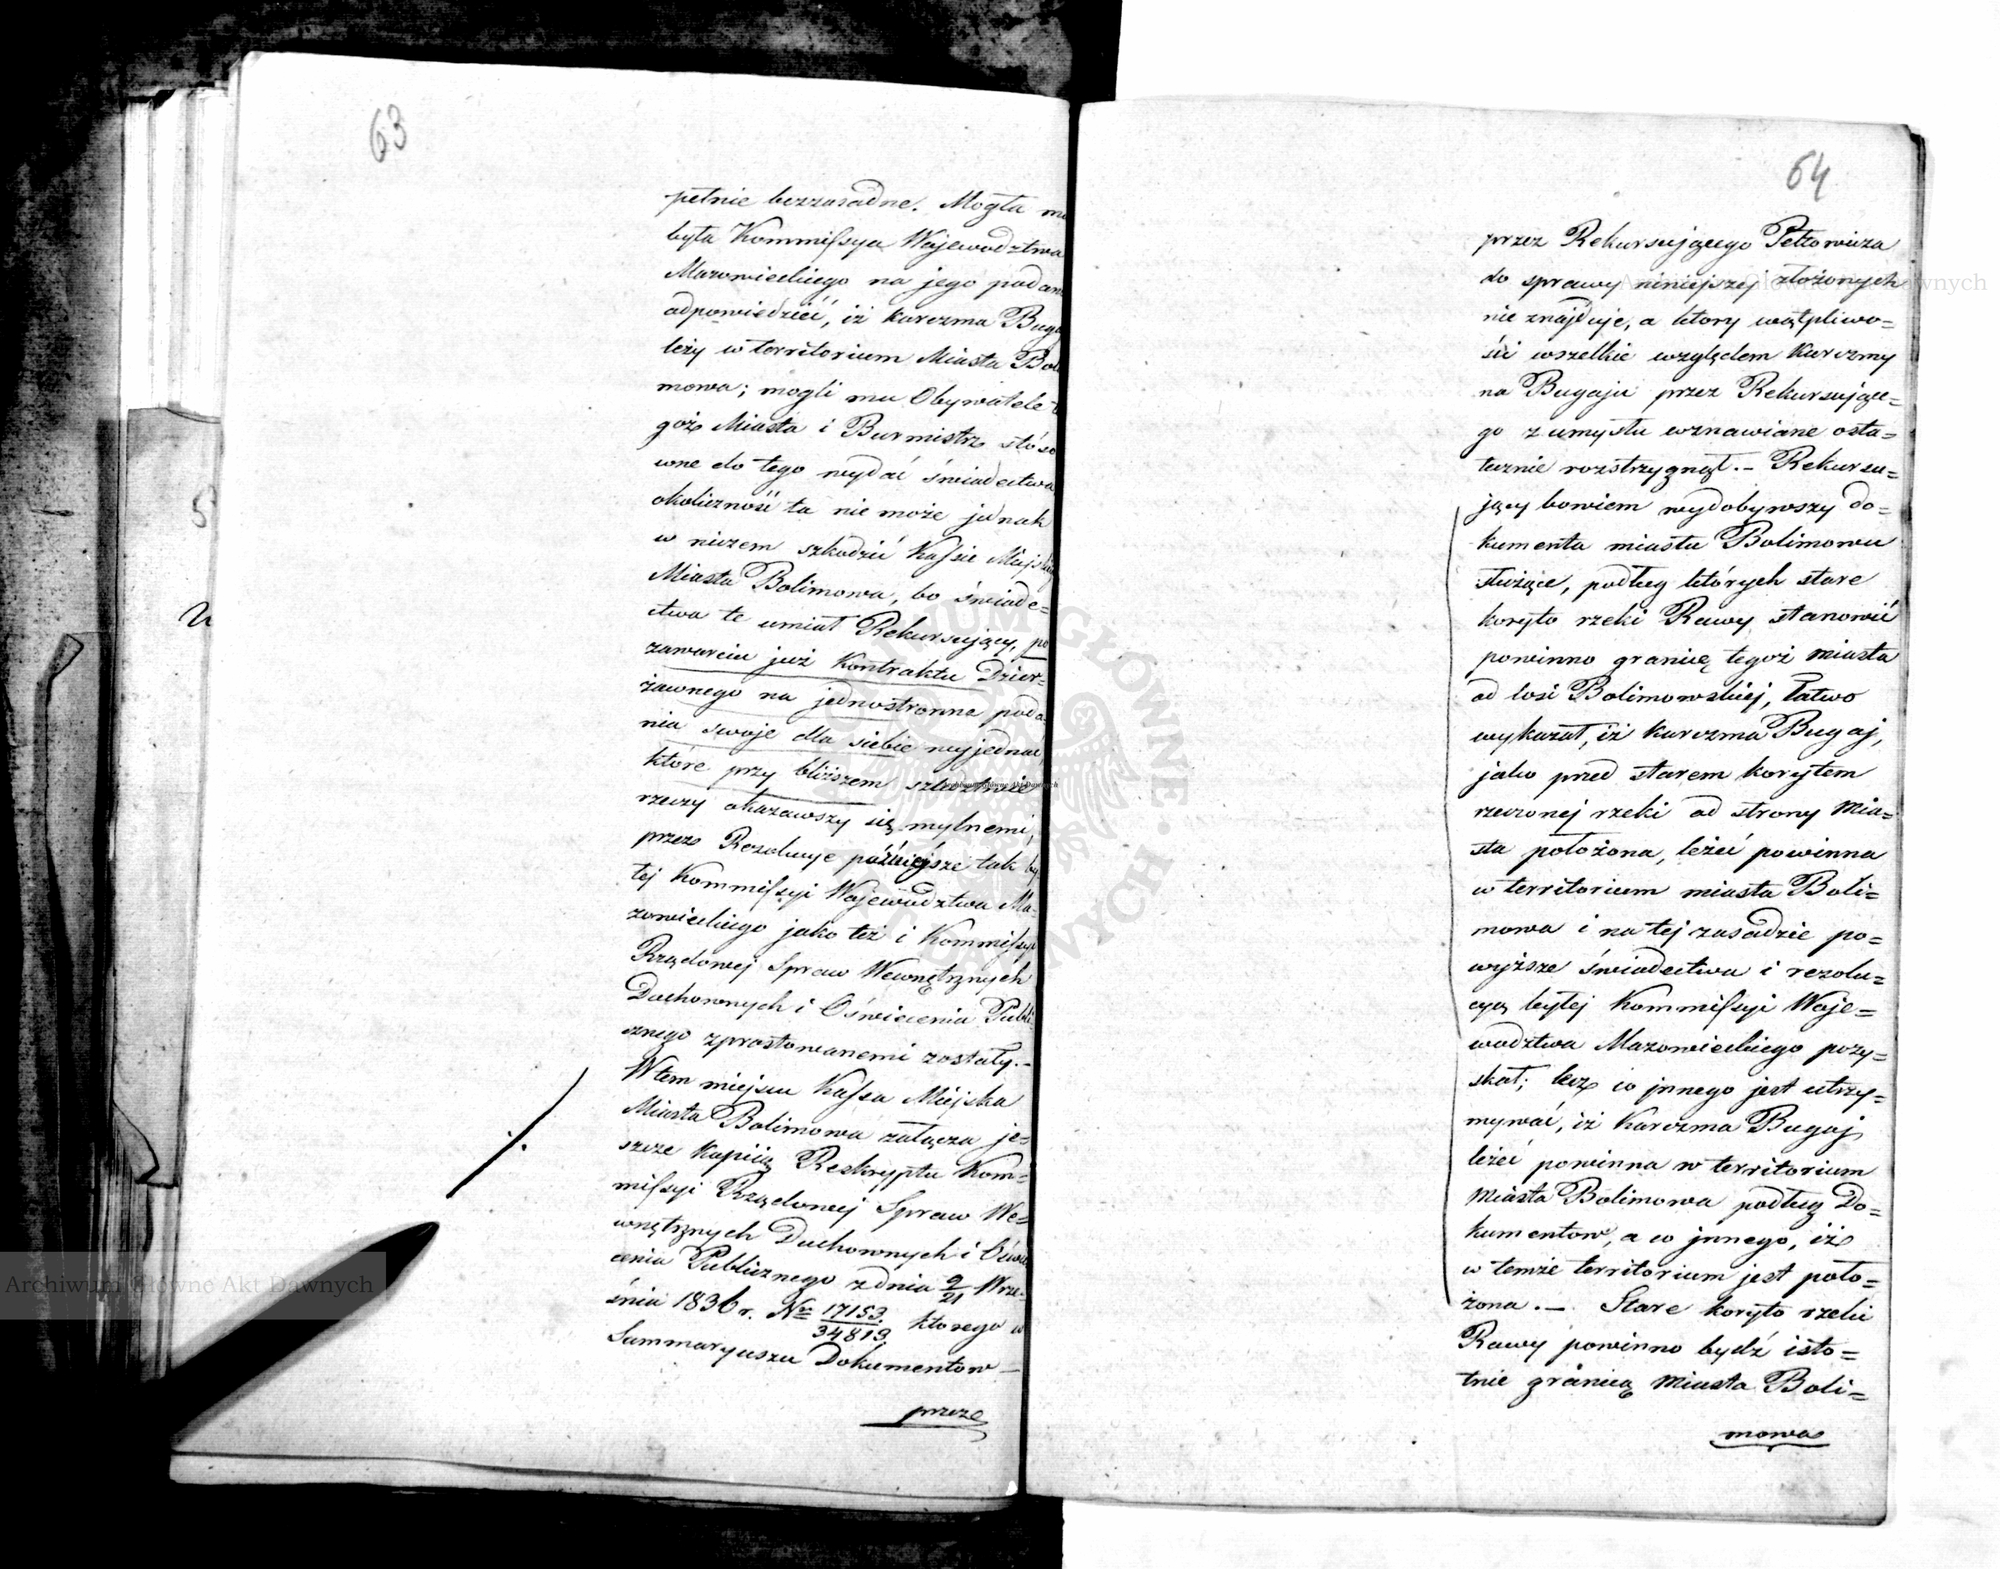 63
pełnie bezzasadne. Mogła mu
była Kommissya Województwa
Mazowieckiego na jego podanie
odpowiedzieć, iż karczma Buga
leży w territorium Miasta Boli
mowa; mogli mu Obywatele te
goż Miasta i Burmistrz stóso
wne do tego wydać świadectwa
okoliczność ta nie może jednak
w niczem szkodzić Kassie Miejskiej
Miasta Bolimowa, bo świade=
ctwa te umiał Rekursujący, po
zawarciu już Kontraktu Dzier=
żawnego na jednostronne poda=
nia swoje dla siebie wyjednać,
które przy bliższem szledztwie
rzeczy okazawszy się mylnemi,
przez Rezolucye późniejsze tak by
łej Kommissyi Województwa Ma=
zowieckiego jako też i Kommissyi
Rządowej Spraw Wewnętrznych
Duchownych i Oświecenia Publi
cznego sprostowanemi zostały.—
W tem miejscu Kassa Miejska
Miasta Bolimowa załącza je=
szcze kopiią Reskryptu Kom=
missyi Rządowej Spraw We=
wnętrznych Duchownych i Oświe
cenia Publicznego z dnia 9/21 Wrze=
śnia 1836 r. No 17153/34813 którego w
Summaryuszu Dokumentow—
przez
64
przez Rekursującego Pełzowicza
do sprawy niniejszej złożonych
nie znajduje, a ktory wątpliwo=
ści wszelkie względem Karczmy
na Bugaju przez Rekursujące=
go z umysłu wznawiane osta=
tecznie rozstrzygnął.— Rekursu=
jący bowiem wydobywszy do=
kumenta miastu Bolimowu
służące, podług których stare
koryto rzeki Rawy stanowić
powinno granicę tegoż miasta
od wsi Bolimowskiej, łatwo
wykazał, iż karczma Bugaj,
jako przed starem korytem
rzeczonej rzeki od strony Mia=
sta położona, leżeć powinna
w territorium miasta Boli=
mowa i na tej zasadzie po=
wyższe świadectwa i rezolu=
cyą byłej Kommissyi Woje=
wodztwa Mazowieckiego pozy=
skał; lecz co jnnego jest utrzy=
mywać, iż Karczma Bugaj
leżeć powinna w territorium
Miasta Bolimowa podług Do=
kumentow, a co jnnego, iż
w temże territorium jest poło=
żona.— Stare koryto rzeki
Rawy powinno bydź isto=
tnie granicą Miasta Boli=
mowa
Archiwum Główne Akt Dawnych
Archiwum Główne Akt Dawnych
Archiwum Główne Akt Dawnych